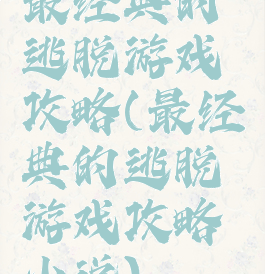 最经典的
逃脱游戏
攻略(最经
典的逃脱
游戏攻略
小说)